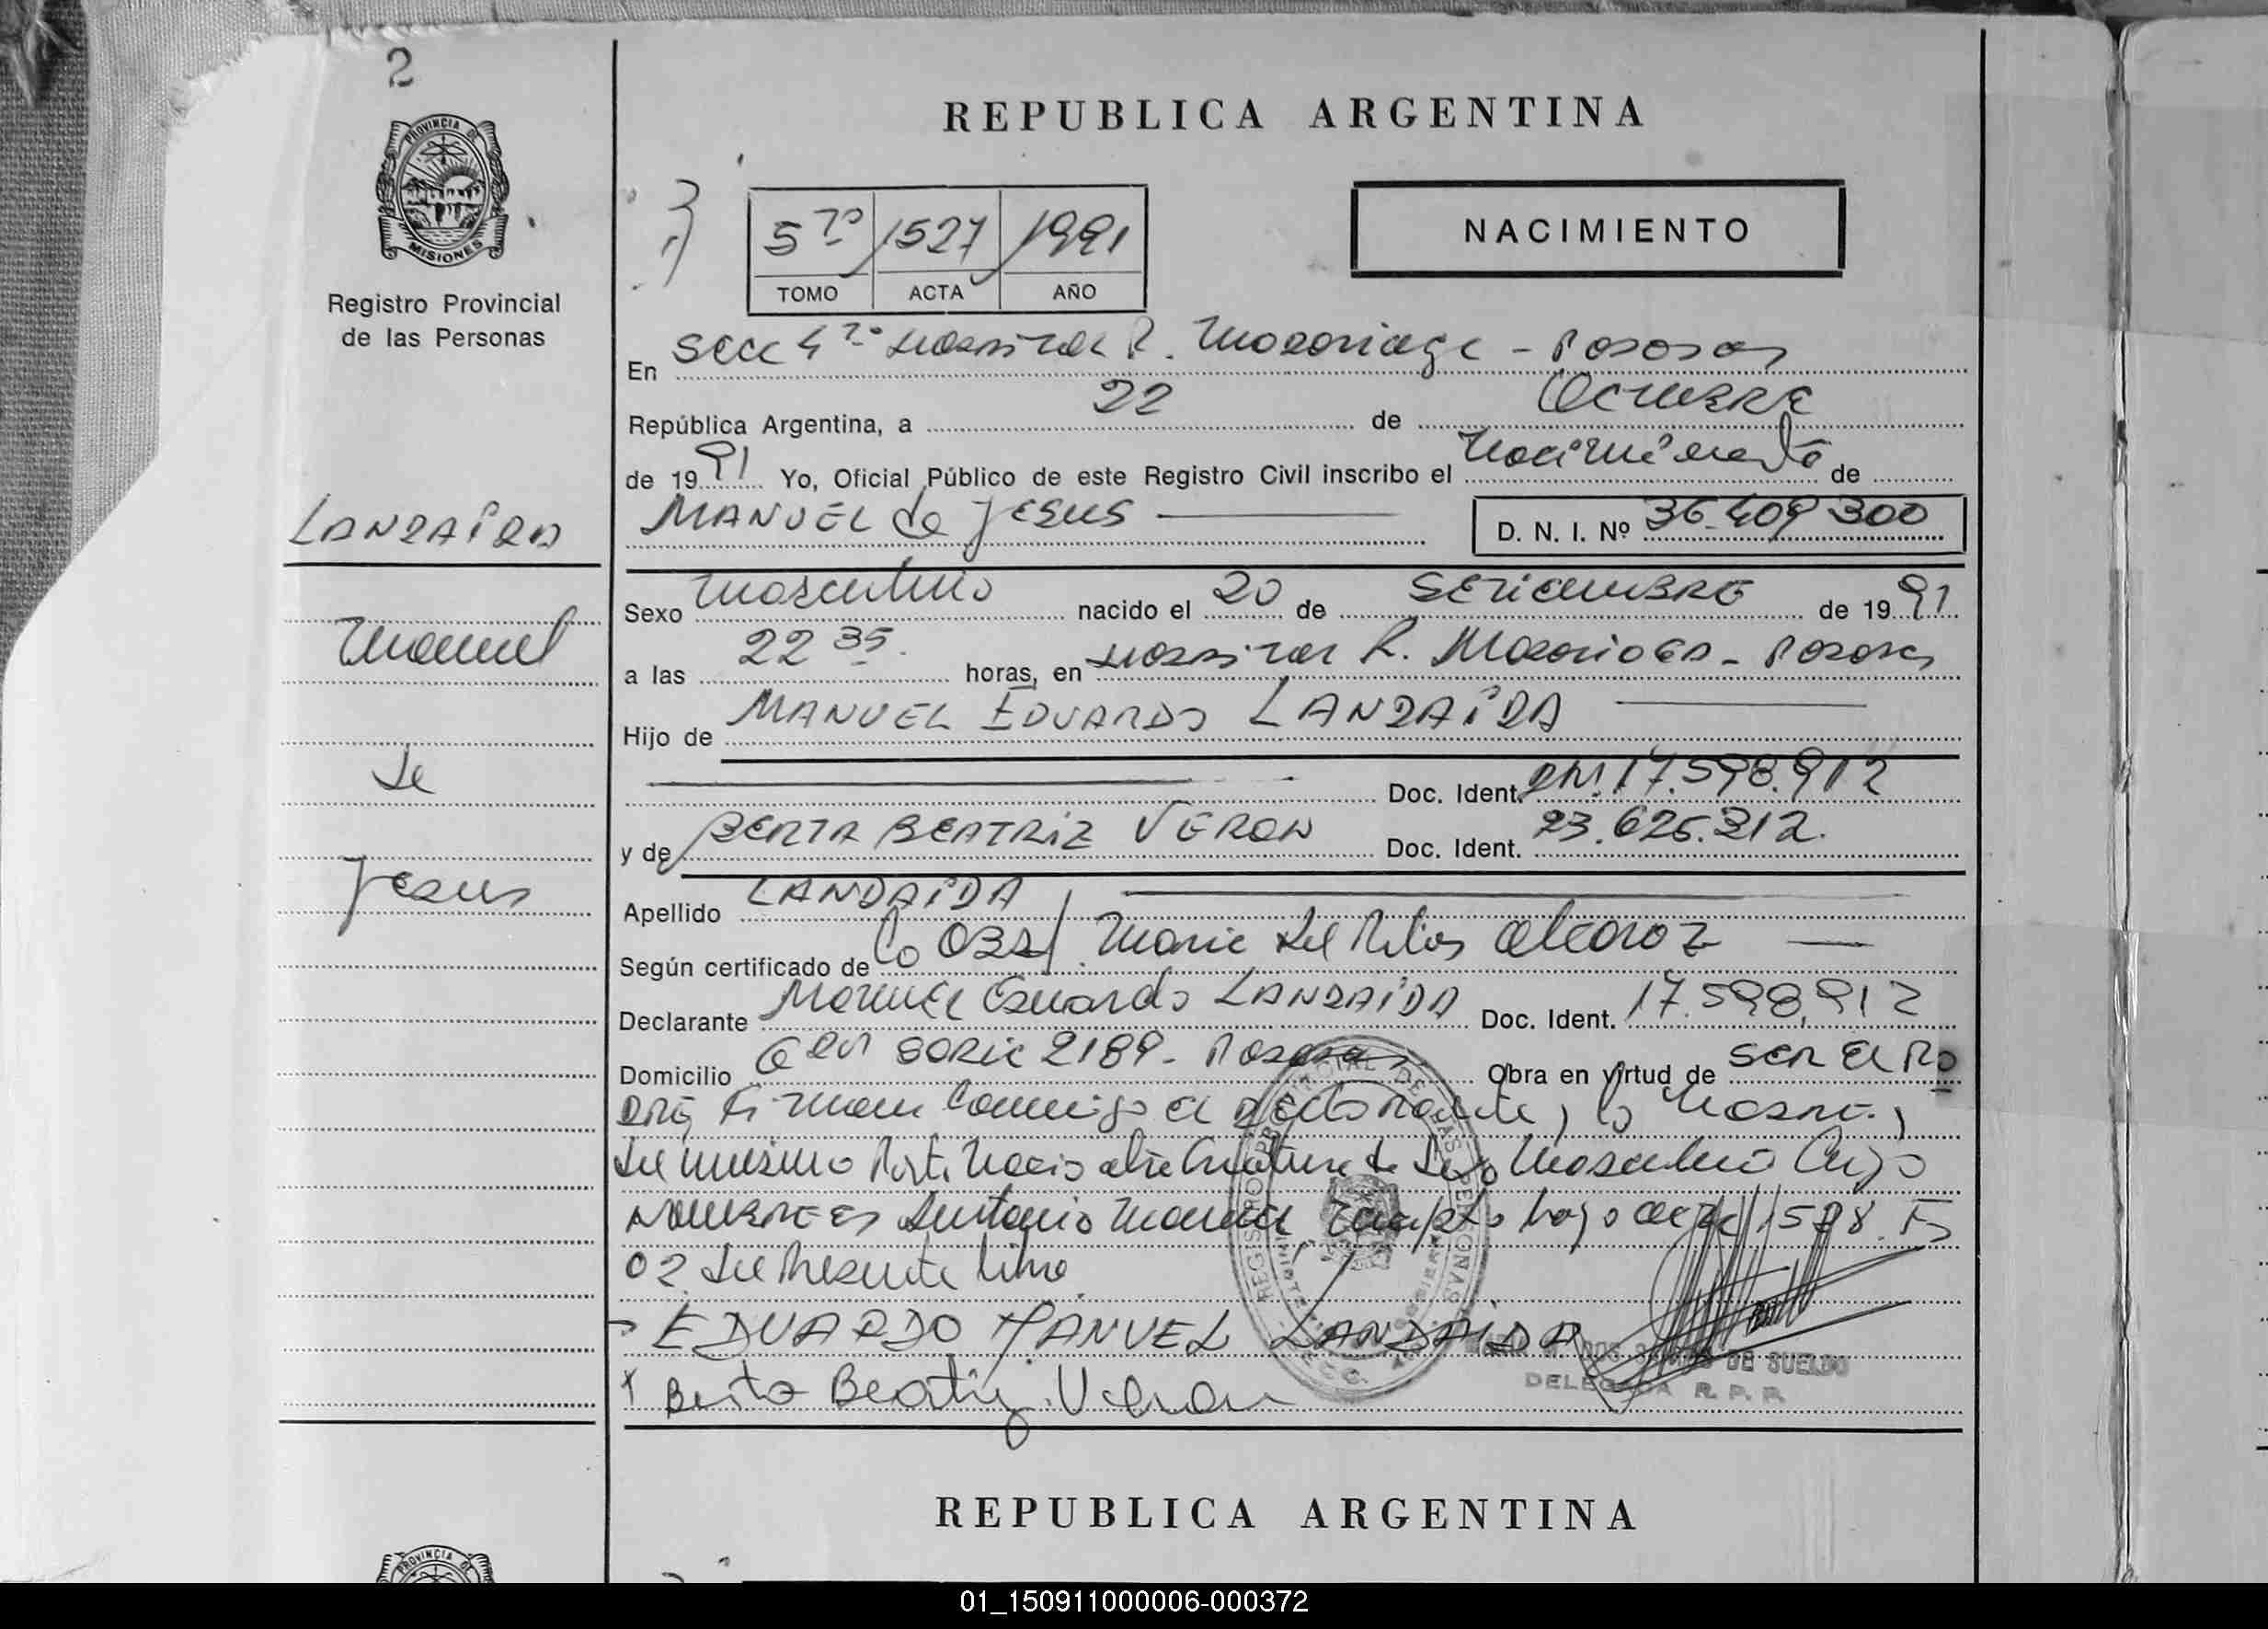 2
PROVINCIA DE
MISIONES
Registro Provincial
de las Personas
REPUBLICA ARGENTINA
NACIMIENTO
5to 1527 1991
TOMO ACTA AÑO
En Secc 4ta Hospital R. Madariaga - Posadas
República Argentina, a 22 de Octubre
de 1991 Yo, Oficial Público de este Registro Civil inscribo el Nacimiento de
MANUEL de JESUS D. N. I. Nº 36.409 300
LANDAIDA
Manuel
de
Jesus
Sexo Masculino nacido el 20 de SETIEMBRE de 1991
a las 22 35. horas, en Hospital R. Madariaga - Posadas
Hijo de MANUEL EDUARDO LANDAIDA
Doc. Ident. DNI. 17.598.912
y de BERTA BEATRIZ VERON Doc. Ident. 23.626.312.
Apellido LANDAIDA
Según certificado de la Obst/ Maria del Alcaroz
Declarante Manuel Eduardo LANDAIDA Doc. Ident. 17.598.912
Domicilio 2189 - Posadas Obra en virtud de ser el Pa
dre, Firman conmigo el declarante, la Madre,
del mismo Parto Nacio otra Criatura de Sexo Masculino Cuyo
nombre es Manuel, bajo acta 1528. Fs
02 del Presente libro
EDUARDO MANUEL LANDAIDA
x Berta Beatriz Veron
REGISTRO PROVINCIAL DE LAS PERSONAS
DE SUELDO
DELEGADA R. P. P.
REPUBLICA ARGENTINA
PROVINCIA DE
01_150911000006-000372